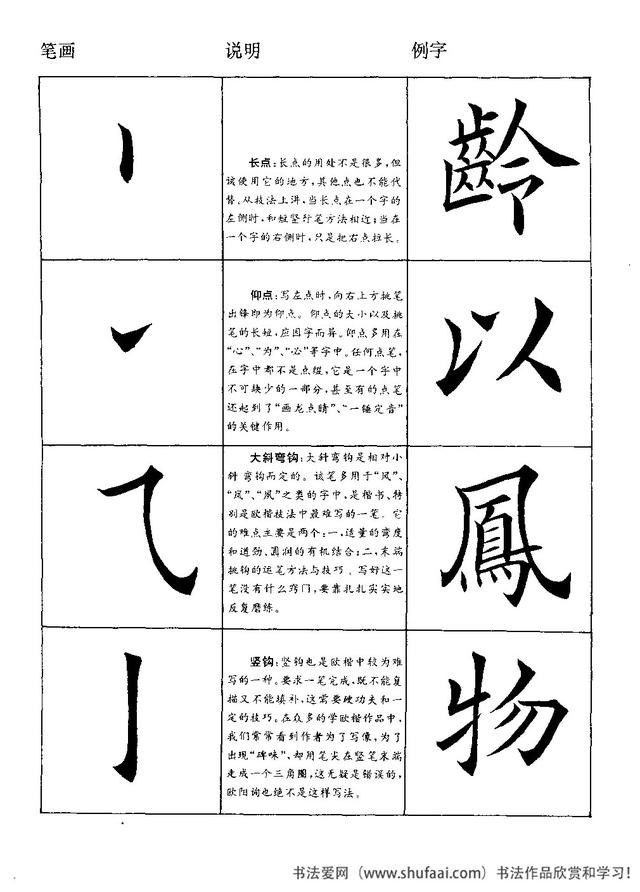 笔画 说明 例字
长点：长点的用处不是很多，但
该使用它的地方，其他点也不能代
替。从技法上讲，当长点在一个字的
左侧时，和短竖行笔方法相近；当在
一个字的右侧时，只是把右点拉长。
齡
仰点：写左点时，向右上方挑笔
出锋即为仰点。仰点的大小以及挑
笔的长短，应因字而异。仰点多用在
“心”、“为”、“必”等字中。任何点笔，
在字中都不是点缀，它是一个字中
不可缺少的一部分，甚至有的点笔
还起到了“画龙点睛”、“一锤定音”
的关键作用。
以
大斜弯钩：大斜弯钩是相对小
斜弯钩而定的。该笔多用于“风”、
“凤”、“夙”之类的字中，是楷书、特
别是欧楷技法中最难写的一笔。它
的难点主要是两个：一，适量的弯度
和遒劲、圆润的有机结合；二，末端
挑钩的运笔方法与技巧。写好这一
笔没有什么窍门，要靠扎扎实实地
反复磨练。
鳳
竖钩：竖钩也是欧楷中较为难
写的一种。要求一笔完成，既不能复
描又不能填补，这需要硬功夫和一
定的技巧。在众多的学欧楷作品中，
我们常常看到作者为了写像，为了
出现“碑味”、却用笔尖在竖笔末端
走成一个三角圈，这无疑是错误的，
欧阳询也绝不是这样写法。
物
书法爱网（www.shufaai.com）书法作品欣赏和学习！